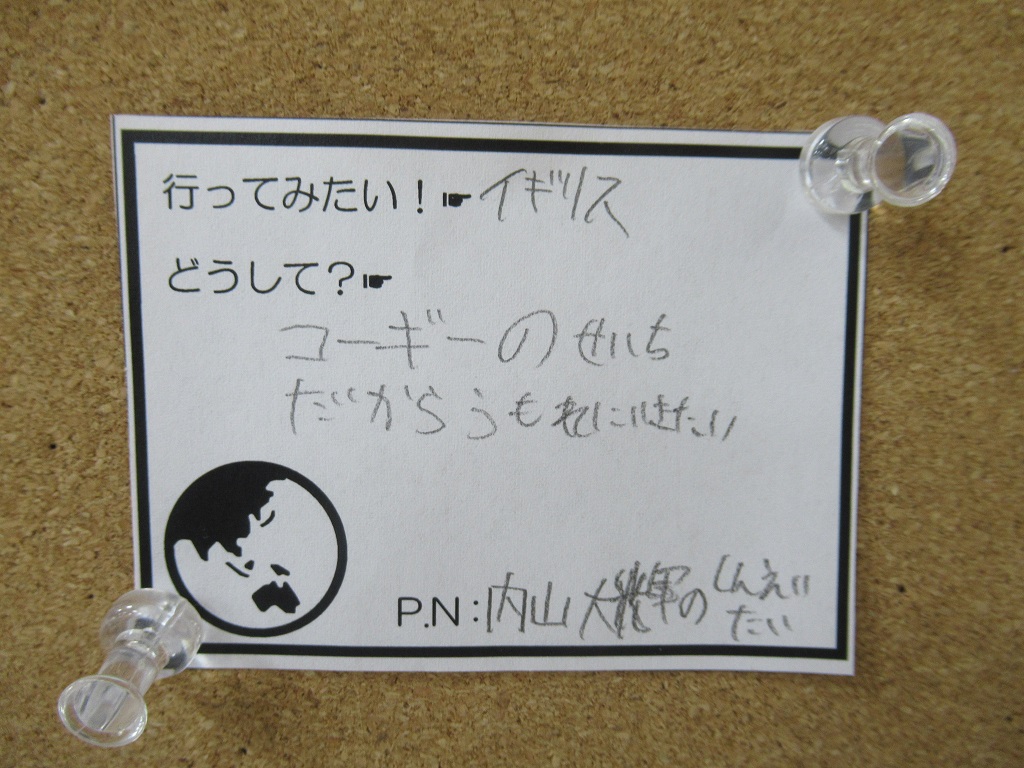 行ってみたい！☛イギリス
どうして？☛
コーギーのせいち
だからうもれにいきたい
P.N：内山大輝のしんえい
たい